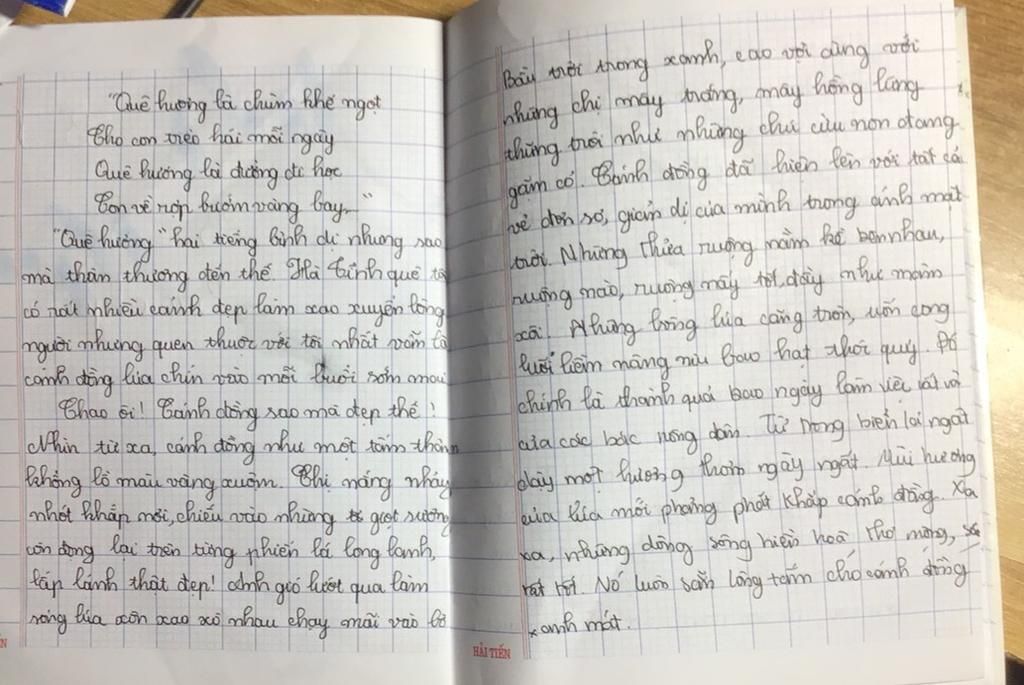 "Quê hương là chùm khế ngọt
Cho con trèo hái mỗi ngày
Quê hương là đường đi học
Con về rợp bướm vàng bay..."
"Quê hương" hai tiếng bình dị nhưng sao
mà thân thương đến thế. Hà Tĩnh quê tôi
có rất nhiều cảnh đẹp làm xao xuyến lòng
người nhưng quen thuộc với tôi nhất vẫn là
cánh đồng lúa chín vào mỗi buổi sớm mai
Chao ôi! Cánh đồng sao mà đẹp thế!
Nhìn từ xa, cánh đồng như một tấm thảm
khổng lồ màu vàng xuộm. Chị nắng nhảy
nhót khắp nơi, chiếu vào những giọt sương
còn đọng lại trên từng phiến lá long lanh,
lấp lánh thật đẹp! Anh gió lướt qua làm
sóng lúa xôn xao xô nhau chạy mãi vào bờ
Bầu trời trong xanh, cao vời cùng với
những chị mây trắng, mây hồng lang
thững trôi như những chú cừu non đang
gặm cỏ. Cánh đồng đã hiện lên với tất cả
vẻ đơn sơ, giản dị của mình trong ánh mặt
trời. Những thửa ruộng nằm kề bên nhau,
ruộng nào, ruộng nấy tốt, dày như mâm
xôi. Những bông lúa căng tròn, uốn cong
lưỡi liềm nâng niu bao hạt thóc quý. Đó
chính là thành quả bao ngày làm việc vất vả
của các bác nông dân. Từ trong biển lại ngất
dậy một hương thơm ngây ngất. Mùi hương
của lúa mới phảng phất khắp cánh đồng. Xa
xa, những dòng sông hiền hoà thơ mộng,
rất tốt. Nó luôn sẵn lòng tắm cho cánh đồng
xanh mát.
HẢI TIẾN